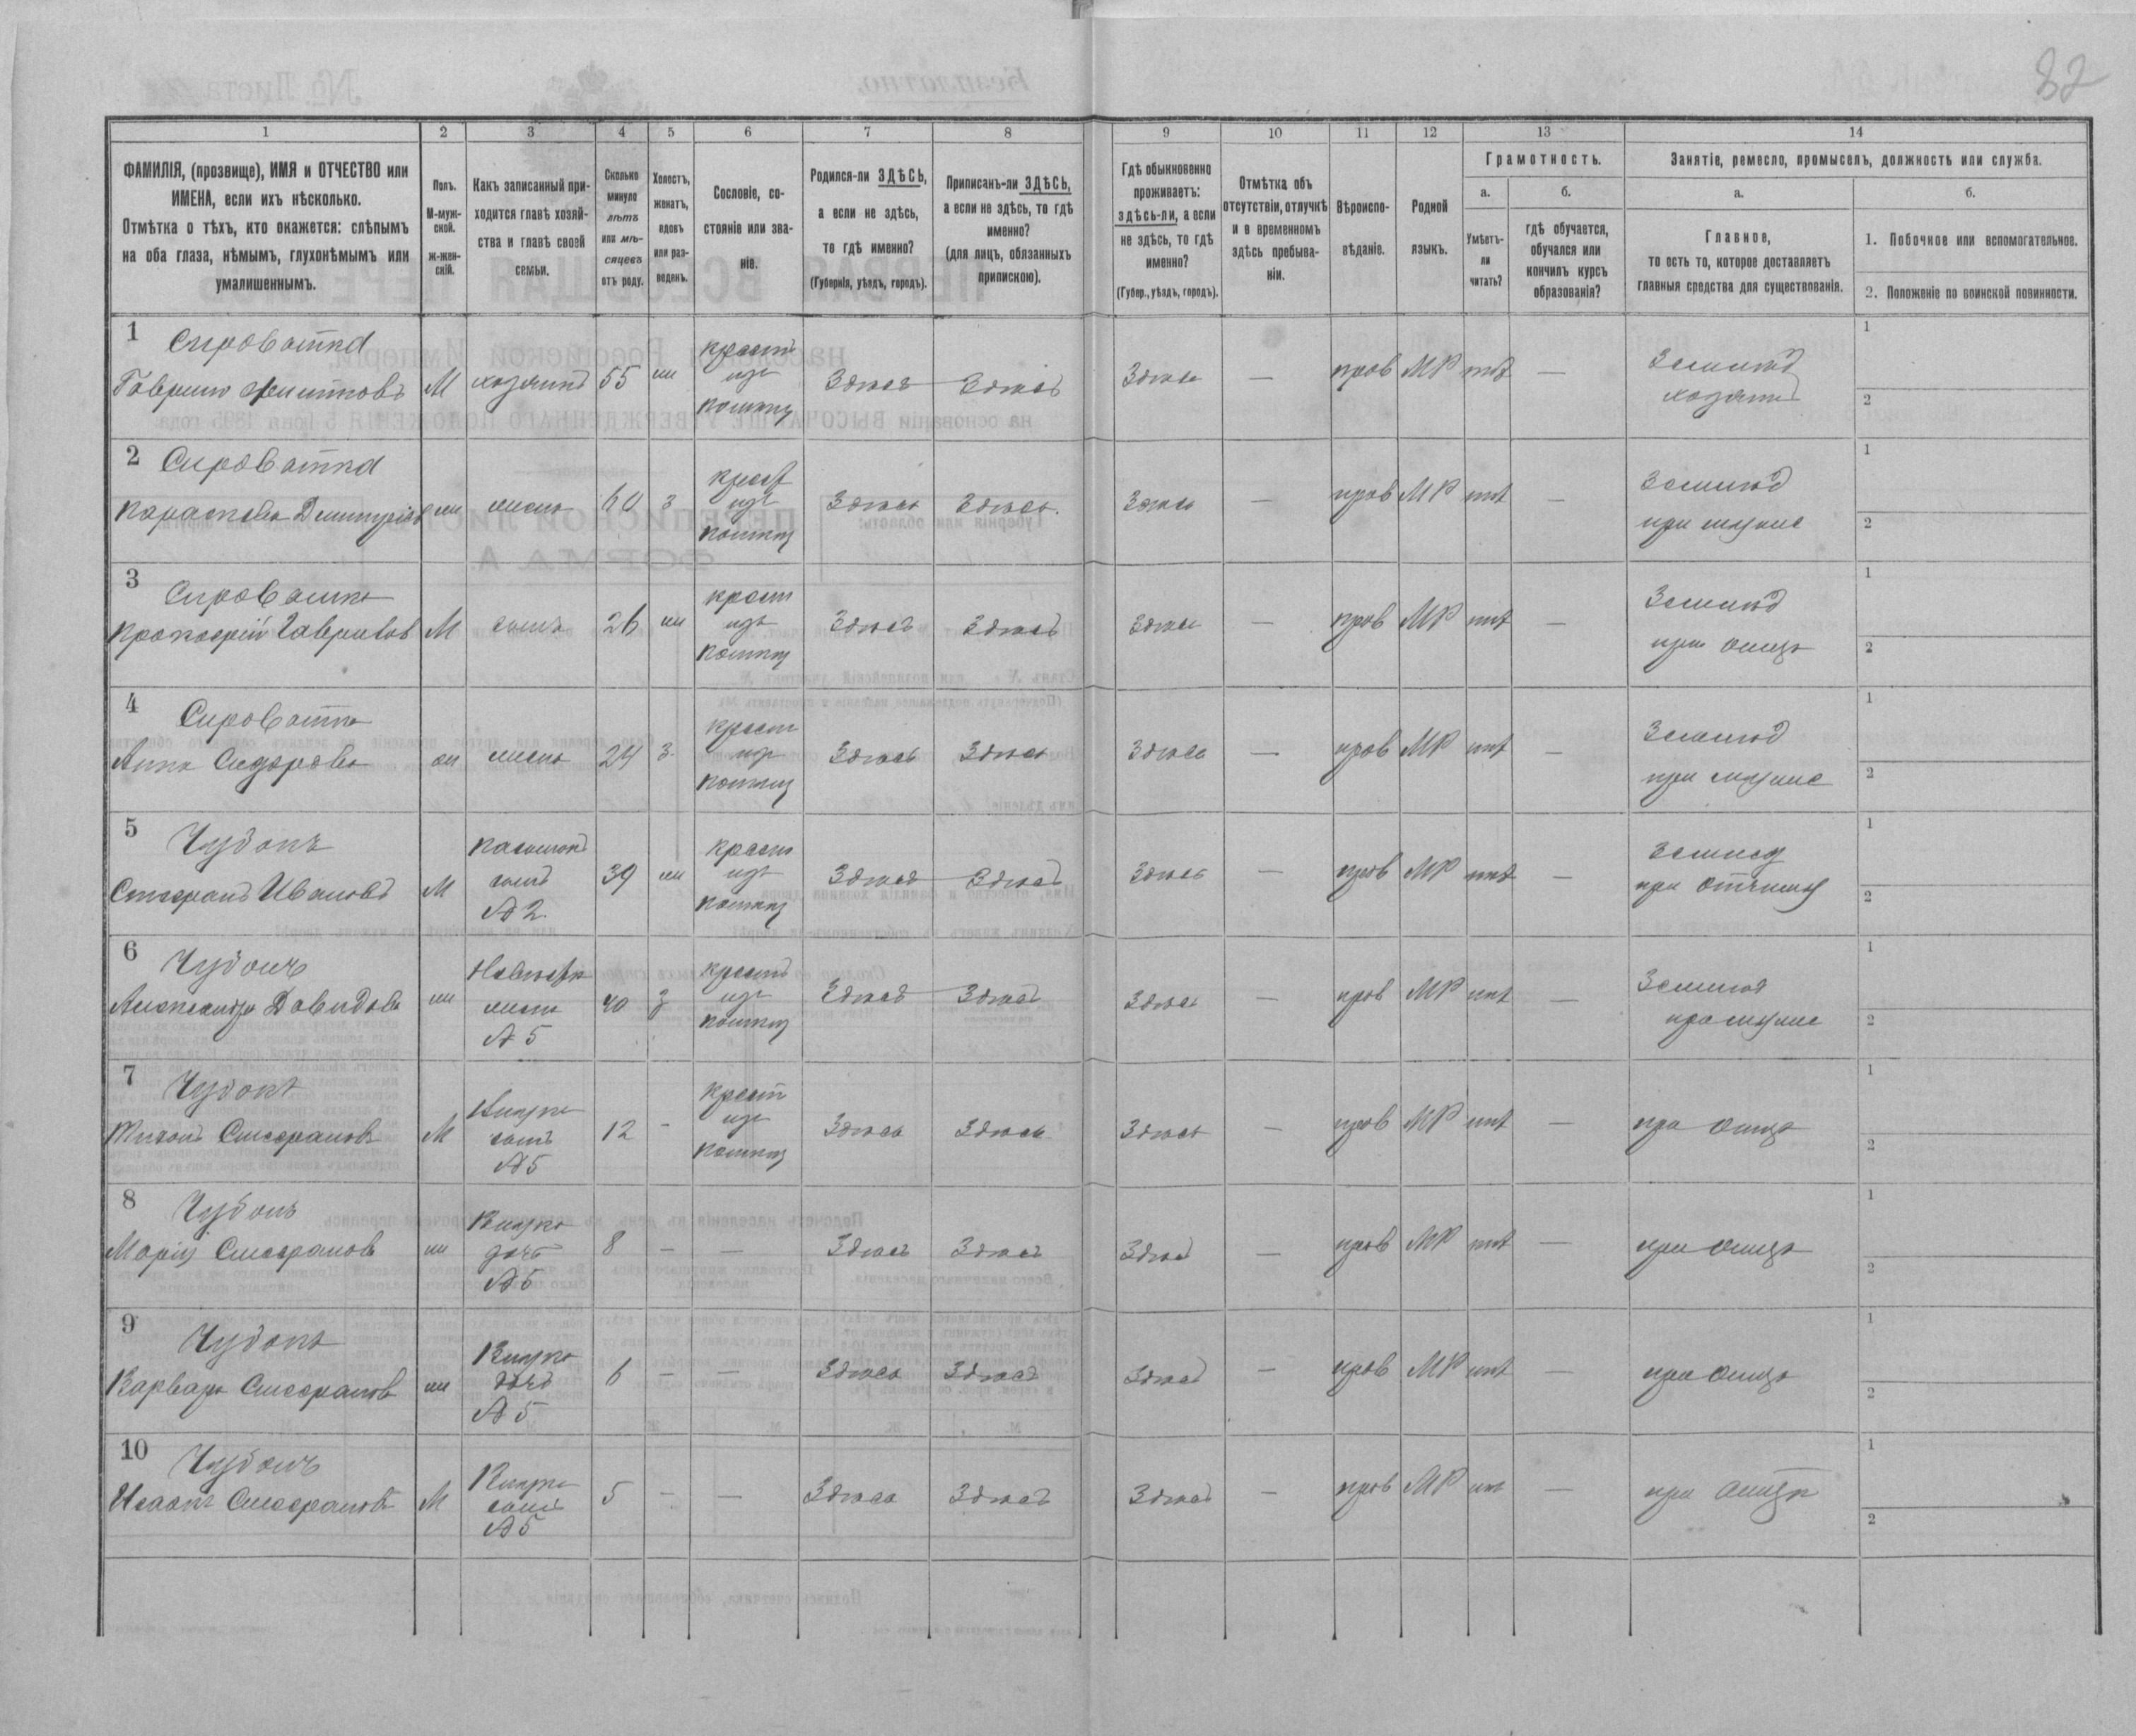 82
1 2 3 4 5 6 7 8 9 10 11 12 13 14
ФАМИЛІЯ, (прозвище), ИМЯ и ОТЧЕСТВО или
ИМЕНА, если ихъ нѣсколько.
Отмѣтка о тѣхъ, кто окажется: слѣпымъ
на оба глаза, нѣмымъ, глухонѣмымъ или
умалишеннымъ.
Полъ.
М-муж-
ской.
ж-жен-
скій.
Какъ записанный при-
ходится главѣ хозяй-
ства и главѣ своей
семьи.
Сколько
минуло
лѣтъ
или мѣ-
сяцевъ
отъ роду.
Холостъ,
женатъ,
вдовъ
или раз-
веденъ.
Сословіе, со-
стояніе или зва-
ніе.
Родился-ли ЗДѢСЬ,
а если не здѣсь,
то гдѣ именно?
(Губернія, уѣздъ, городъ).
Приписанъ-ли ЗДѢСЬ,
а если не здѣсь, то гдѣ
именно?
(для лицъ, обязанныхъ
припискою).
Гдѣ обыкновенно
проживаетъ:
здѣсь-ли, а если
не здѣсь, то гдѣ
именно?
(Губер., уѣздъ, городъ).
Отмѣтка объ
отсутствіи, отлучкѣ
и о временномъ
здѣсь пребыва-
ніи.
Вѣроиспо-
вѣданіе.
Родной
языкъ.
Грамотность.
а.
Умѣетъ-
ли
читать?
б.
гдѣ обучается,
обучался или
кончилъ курсъ
образованія?
Занятіе, ремесло, промыселъ, должность или служба.
а.
Главное,
то есть то, которое доставляетъ
главныя средства для существованія.
б.
1. Побочное или вспомогательное.
2. Положеніе по воинской повинности.
1 Сыроватка
М хозяинъ 55 крест Здѣсь Здѣсь Здѣсь — прав МР нѣт — Землед
хозяинъ
1
2
2 Сыроватка
жена 60 з крест Здѣсь Здѣсь Здѣсь — прав МР нѣт — Землед
при мужѣ
1
2
3 Сыроватка
Прокофій Гаврилов М сынъ 26 ж крест Здѣсь Здѣсь Здѣсь — прав МР нѣт — Землед
при отцѣ
1
2
4 Сыроватка
Анна Сидорова ж жена 24 з крест Здѣсь Здѣсь Здѣсь — прав МР нѣт — Землед
при мужѣ
1
2
5
Стефанъ Ивановъ М сынъ № 2 39 ж крест Здѣсь Здѣсь Здѣсь — прав МР нѣт — Землед
при отчимѣ
1
2
6
Александра Давидова ж Невѣстка № 5 40 з крест Здѣсь Здѣсь Здѣсь — прав МР нѣт — Землед
при мужѣ
1
2
7
Тихонъ Стефанов М Внукъ сынъ № 5 12 - крест Здѣсь Здѣсь Здѣсь — прав МР нѣт — при отцѣ
1
2
8
Марія Стефанов ж Внука дочь № 5 8 — — Здѣсь Здѣсь Здѣсь — прав МР нѣт — при отцѣ
1
2
9
Варвара Стефанов ж Внука дочь № 5 6 — — Здѣсь Здѣсь Здѣсь — прав МР нѣт — при отцѣ
1
2
10
Исаакъ Стефановъ М Внукъ сынъ № 5 5 — — Здѣсь Здѣсь Здѣсь — прав МР нѣт — при отцѣ
1
2